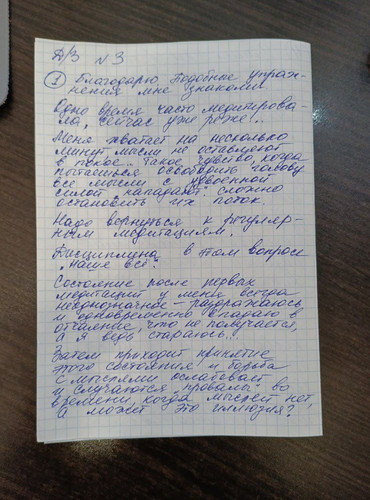 Д/З N 3
① Благодарю Подобные упраж-
нения мне знакомы.
Одно время часто медитирова-
ла, сейчас уже реже!..
Меня хватает на несколько
минут, мысли не оставляют
в покое... Такое чувство, когда
пытаешься освободить голову
все мысли с удвоенной
силой нападают. Сложно
остановить их поток
Надо вернуться к регуляр-
ным медитациям.
Дисциплина в этом вопросе
"наше всё".
Состояние после первых
медитаций у меня всегда
неоднозначное - раздражаюсь
и одновременно впадаю в
отчаяние, что не получается,
а я ведь стараюсь!..
Затем приходит принятие
этого состояния и борьба
с мыслями ослабевает
и случаются "провалы" во
времени, когда мыслей нет,
а может это иллюзия?